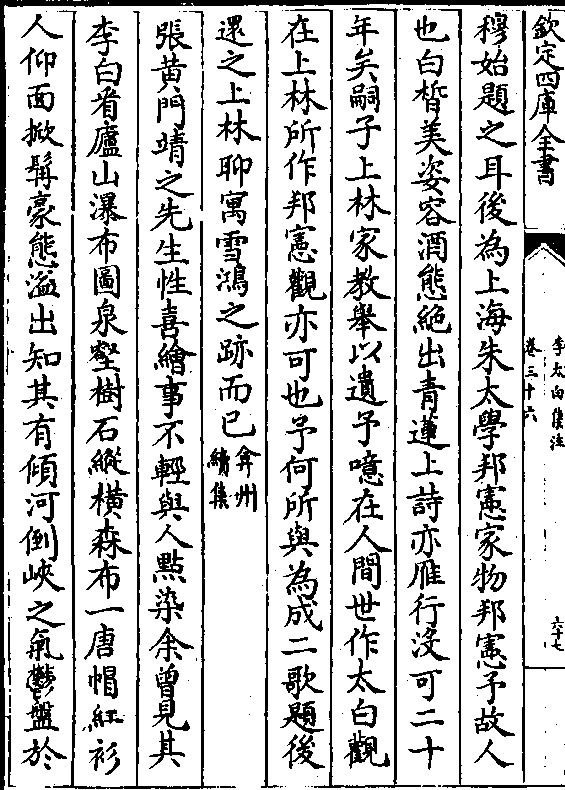 欽定四庫全書
李太白集注
卷三十六
六十七
穆始題之耳後為上海朱太學邦憲家物邦憲予故人
也白晳美姿容酒態絶出青蓮上詩亦雁行没可二十
年矣嗣子上林家教舉以遺予噫在人間世作太白觀
在上林所作邦憲觀亦可也予何所與為成二歌題後
還之上林聊寓雪鴻之跡而已弇州
續集
張黃門靖之先生性喜繪事不輕與人㸃染余曾見其
李白看廬山瀑布圖泉壑樹石縱横森布一唐帽紅衫
人仰面掀髯豪態溢出知其有傾河倒峽之氣鬱盤於